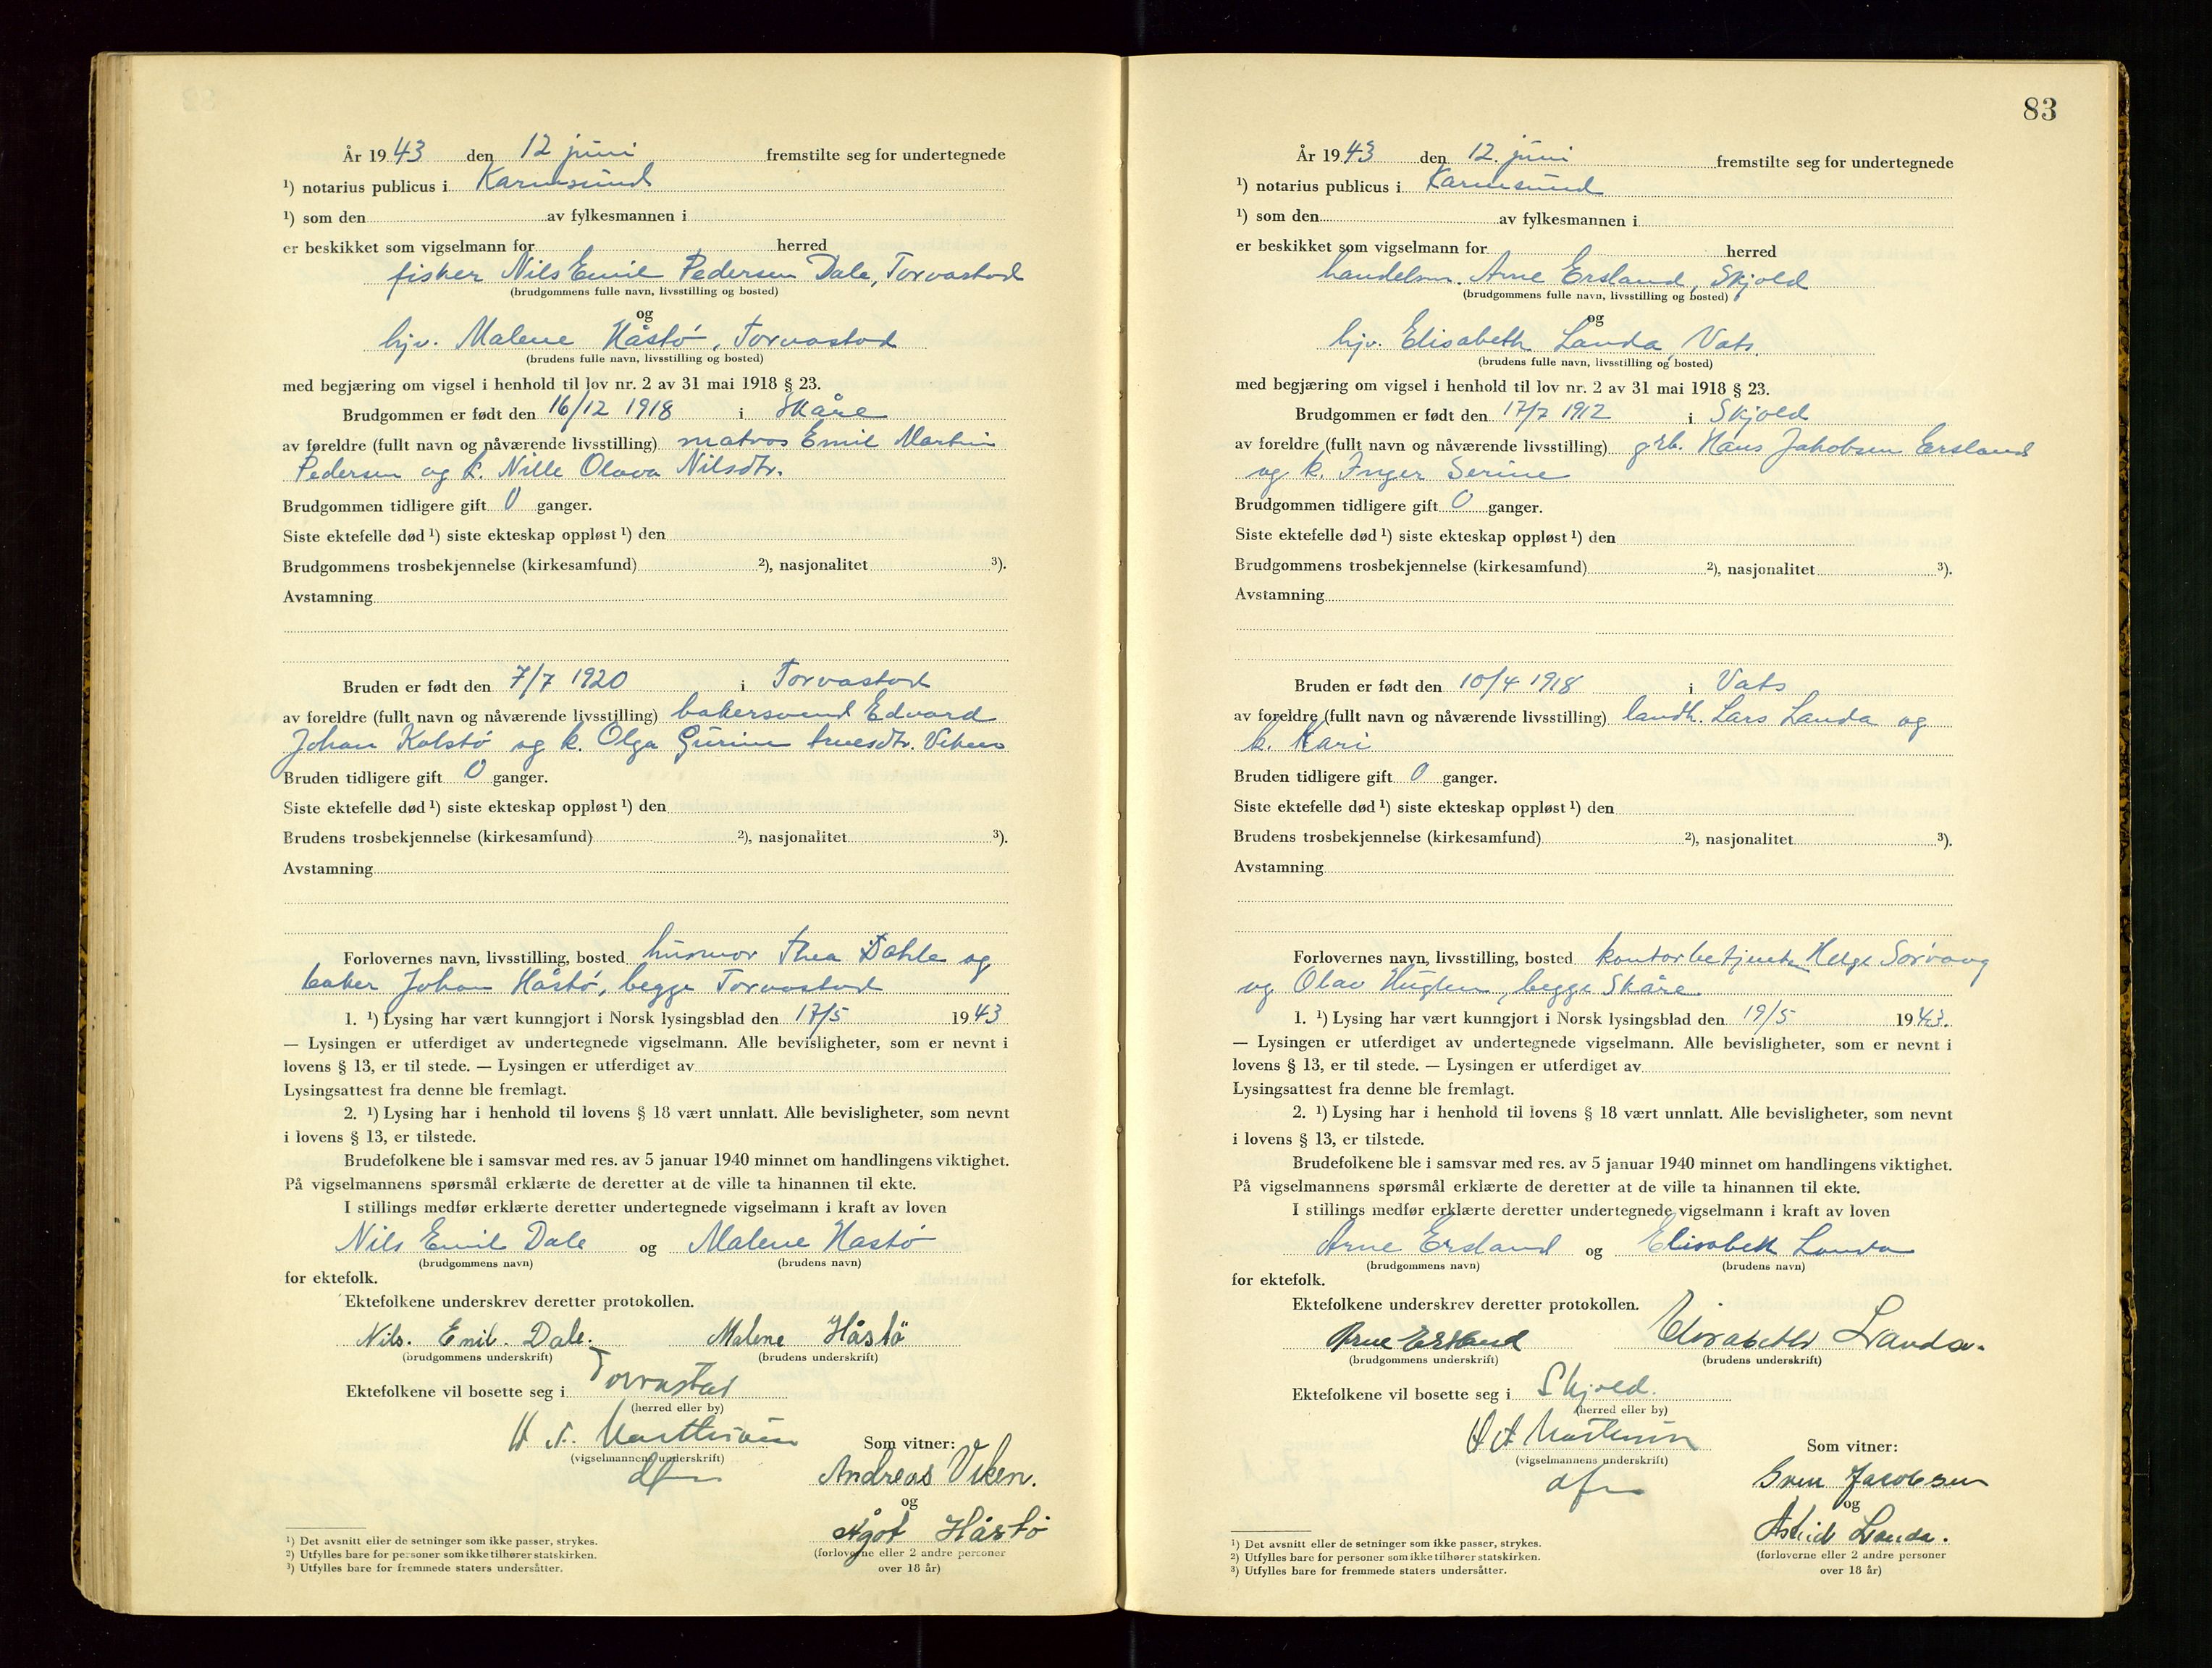 År 1943 den 12 juni fremstilte seg for undertegnede
¹) notarius publicus i Karmsund
¹) som den av fylkesmannen i
er beskikket som vigselmann for herred
fisker Nils Emil Pedersen Dale, Torvastad
(brudgommens fulle navn, livsstilling og bosted)
og
hjv. Malene Håstø, Torvastad
(brudens fulle navn, livsstilling og bosted)
med begjæring om vigsel i henhold til lov nr. 2 av 31 mai 1918 § 23.
Brudgommen er født den 16/12 1918 i Skåre
av foreldre (fullt navn og nåværende livsstilling) matros Emil Martin
Pedersen og k. Nille Olava Nilsdtr.
Brudgommen tidligere gift 0 ganger.
Siste ektefelle død ¹) siste ekteskap oppløst ¹) den
Brudgommens trosbekjennelse (kirkesamfund) ²), nasjonalitet ³).
Avstamning
Bruden er født den 7/7 1920 i Torvastad
av foreldre (fullt navn og nåværende livsstilling) bakersvend Edvard
Johan Kolstø og k. Olga Gurine Viken
Bruden tidligere gift 0 ganger.
Siste ektefelle død ¹) siste ekteskap oppløst ¹) den
Brudens trosbekjennelse (kirkesamfund) ²), nasjonalitet ³).
Avstamning
Forlovernes navn, livsstilling, bosted husmor Thea Dahle og
baker Johan Håstø, begge Torvastad
1. ¹) Lysing har vært kunngjort i Norsk lysingsblad den 17/5 1943
— Lysingen er utferdiget av undertegnede vigselmann. Alle bevisligheter, som er nevnt i
lovens § 13, er til stede. — Lysingen er utferdiget av
Lysingsattest fra denne ble fremlagt.
2. ¹) Lysing har i henhold til lovens § 18 vært unnlatt. Alle bevisligheter, som nevnt
i lovens § 13, er tilstede.
Brudefolkene ble i samsvar med res. av 5 januar 1940 minnet om handlingens viktighet.
På vigselmannens spørsmål erklærte de deretter at de ville ta hinannen til ekte.
I stillings medfør erklærte deretter undertegnede vigselmann i kraft av loven
Nils Emil Dale og Malene Hastø
(brudgommens navn) (brudens navn)
for ektefolk.
Ektefolkene underskrev deretter protokollen.
Nils. Emil. Dale. Malene Håstö
(brudgommens underskrift) (brudens underskrift)
Ektefolkene vil bosette seg i Torvastad
(herred eller by)
Som vitner:
(vigselmannens underskrift)
Andreas Viken.
og
Ågot Håstö
(forloverne eller 2 andre personer
over 18 år)
¹) Det avsnitt eller de setninger som ikke passer, strykes.
²) Utfylles bare for personer som ikke tilhører statskirken.
³) Utfylles bare for fremmede staters undersåtter.
83
År 1943 den 12. juni fremstilte seg for undertegnede
¹) notarius publicus i Karmsund
¹) som den av fylkesmannen i
er beskikket som vigselmann for herred
handelsm. Arne Ersland, Skjold
(brudgommens fulle navn, livsstilling og bosted)
og
hjv. Elisabeth Landa, Vats.
(brudens fulle navn, livsstilling og bosted)
med begjæring om vigsel i henhold til lov nr. 2 av 31 mai 1918 § 23.
Brudgommen er født den 17/7 1912 i Skjold
av foreldre (fullt navn og nåværende livsstilling) grb. Hans Jakobsen Ersland
og k. Inger Serine
Brudgommen tidligere gift 0 ganger.
Siste ektefelle død ¹) siste ekteskap oppløst ¹) den
Brudgommens trosbekjennelse (kirkesamfund) ²), nasjonalitet ³).
Avstamning
Bruden er født den 10/4 1918 i Vats
av foreldre (fullt navn og nåværende livsstilling) landh. Lars Landa og
k. Kari
Bruden tidligere gift 0 ganger.
Siste ektefelle død ¹) siste ekteskap oppløst ¹) den
Brudens trosbekjennelse (kirkesamfund) ²), nasjonalitet ³).
Avstamning
Forlovernes navn, livsstilling, bosted kontorbetjente Helge Sørvaag
og Olav Huglen, begge Skåre
1. ¹) Lysing har vært kunngjort i Norsk lysingsblad den 19/5 1943.
— Lysingen er utferdiget av undertegnede vigselmann. Alle bevisligheter, som er nevnt i
lovens § 13, er til stede. — Lysingen er utferdiget av
Lysingsattest fra denne ble fremlagt.
2. ¹) Lysing har i henhold til lovens § 18 vært unnlatt. Alle bevisligheter, som nevnt
i lovens § 13, er tilstede.
Brudefolkene ble i samsvar med res. av 5 januar 1940 minnet om handlingens viktighet.
På vigselmannens spørsmål erklærte de deretter at de ville ta hinannen til ekte.
I stillings medfør erklærte deretter undertegnede vigselmann i kraft av loven
Arne Ersland og Elisabeth Landa
(brudgommens navn) (brudens navn)
for ektefolk.
Ektefolkene underskrev deretter protokollen.
Arne Ersland Elisabeth Landa.
(brudgommens underskrift) (brudens underskrift)
Ektefolkene vil bosette seg i Skjold.
(herred eller by)
Som vitner:
(vigselmannens underskrift)
Sven Jacobsen
og
Astrid Landa.
(forloverne eller 2 andre personer
over 18 år)
¹) Det avsnitt eller de setninger som ikke passer, strykes.
²) Utfylles bare for personer som ikke tilhører statskirken.
³) Utfylles bare for fremmede staters undersåtter.